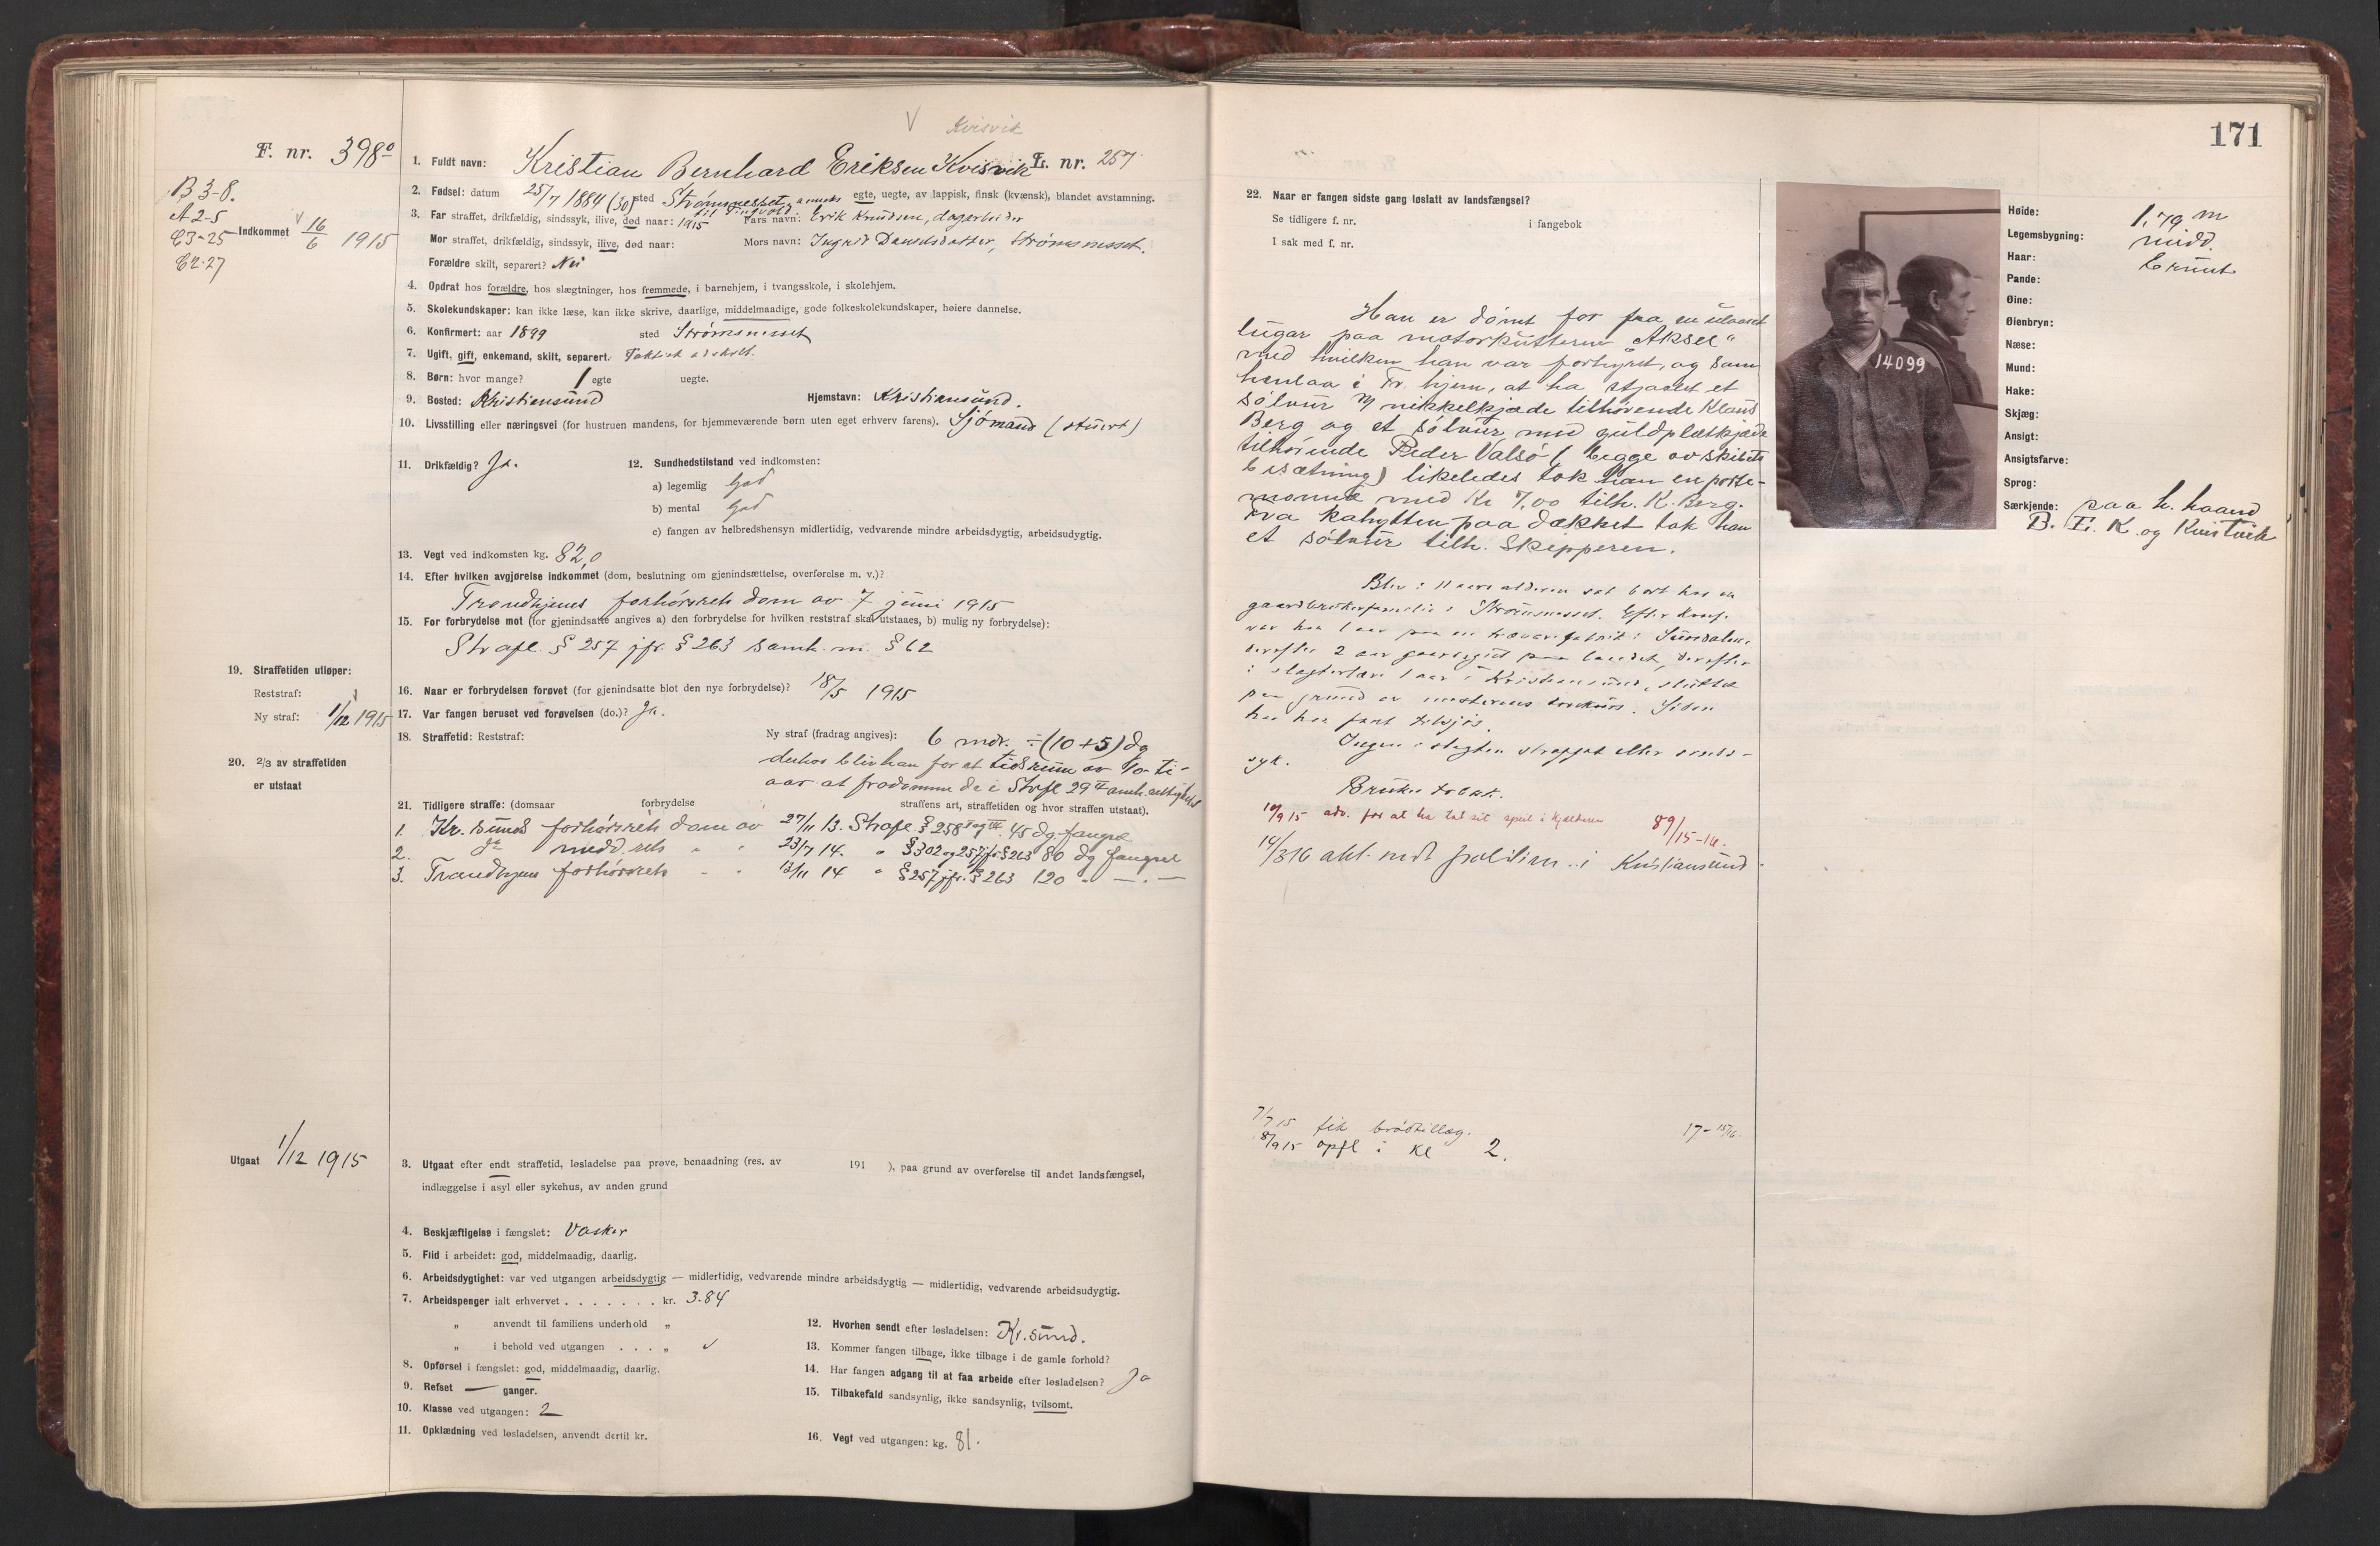 171
V Kvisvik
F. nr. 398°
1. Fuldt navn: Kristian Bernhard Eriksen Kvisvik L. nr. 257
B 3-8.
A 2-5
C 3-25
C 2-27
Indkommet 16/6 1915
2. Fødsel: datum 25/7 1884 (30) sted Strømsnesset, anneks til Tingvold. egte, uegte, av lappisk, finsk (kvænsk), blandet avstamning.
3. Far straffet, drikfældig, sindssyk, ilive, død naar: 1915 Fars navn: Erik Knudsen, dagarbeider
Mor straffet, drikfældig, sindssyk, ilive, død naar: Mors navn: Ingrid Davidsdatter, Strømsnesset.
Forældre skilt, separert? Nei
4. Opdrat hos forældre, hos slægtninger, hos fremmede, i barnehjem, i tvangsskole, i skolehjem.
5. Skolekundskaper: kan ikke læse, kan ikke skrive, daarlige, middelmaadige, gode folkeskolekundskaper, høiere dannelse.
6. Konfirmert: aar 1899 sted Strømsnesset
7. Ugift, gift, enkemand, skilt, separert. Faktisk adskilt.
8. Børn: hvor mange? 1 egte uegte.
9. Bosted: Kristiansund Hjemstavn: Kristiansund.
10. Livsstilling eller næringsvei (for hustruen mandens, for hjemmeværende børn uten eget erhverv farens). Sjømand (stuert)
11. Drikfældig? Ja. 12. Sundhedstilstand ved indkomsten:
a) legemlig God
b) mental God
c) fangen av helbredshensyn midlertidig, vedvarende mindre arbeidsdygtig, arbeidsudygtig.
13. Vegt ved indkomsten kg. 82,0
14. Efter hvilken avgjørelse indkommet (dom, beslutning om gjenindsættelse, overførelse m. v.)?
Trondhjems forhørsrets dom av 7 juni 1915
15. For forbrydelse mot (for gjenindsatte angives a) den forbrydelse for hvilken reststraf skal utstaaes, b) mulig ny forbrydelse):
Strafl. § 257 jfr. § 263 samh. m. § 62
16. Naar er forbrydelsen forøvet (for gjenindsatte blot den nye forbrydelse)? 18/5 1915
17. Var fangen beruset ved forøvelsen (do.)? Ja.
18. Straffetid: Reststraf: Ny straf (fradrag angives): 6 mdr. ÷ (10+5) dg
derhos blir han for et tidsrum av 10 - ti -
aar at fradømme de i Strfl 29 II omh. rettigheter
19. Straffetiden utløper:
Reststraf:
Ny straf: 1/12 1915
20. 2/3 av straffetiden
er utstaat
21. Tidligere straffe: (domsaar forbrydelse straffens art, straffetiden og hvor straffen utstaat).
1. Kr.sunds forhørsrets dom av 27/11 13. Strafl. § 258 45 dg. fængsel
2. do medd.rets " " 23/7 14. " § 302 og 257 jfr. § 263 80 dg fængsel
3. Trondhjems forhørsrets " " 13/11 14 " § 257 jfr. § 263 120 " — . —
Utgaat 1/12 1915
3. Utgaat efter endt straffetid, løsladelse paa prøve, benaadning (res. av 191 ), paa grund av overførelse til andet landsfængsel,
indlæggelse i asyl eller sykehus, av anden grund
4. Beskjæftigelse i fængslet: Vasker
5. Flid i arbeidet: god, middelmaadig, daarlig.
6. Arbeidsdygtighet: var ved utgangen arbeidsdygtig — midlertidig, vedvarende mindre arbeidsdygtig — midlertidig, vedvarende arbeidsudygtig.
7. Arbeidspenger ialt erhvervet . . . . . . . kr. 3.84
" anvendt til familiens underhold "
" i behold ved utgangen . . . "
8. Opførsel i fængslet: god, middelmaadig, daarlig.
9. Refset — ganger.
10. Klasse ved utgangen: 2
11. Opklædning ved løsladelsen, anvendt dertil kr.
12. Hvorhen sendt efter løsladelsen: Kr.sund.
13. Kommer fangen tilbage, ikke tilbage i de gamle forhold?
14. Har fangen adgang til at faa arbeide efter løsladelsen? Ja
15. Tilbakefald sandsynlig, ikke sandsynlig, tvilsomt.
16. Vegt ved utgangen: kg. 81.
22. Naar er fangen sidste gang løslatt av landsfængsel?
Se tidligere f. nr. i fangebok
I sak med f. nr.
Han er dømt for fra en ulaaset
lugar paa motorkutteren "Aksel"
med hvilken han var forhyret, og som
henlaa i Tr.hjem, at ha stjaalet et
sølvur m/ nikkelkjæde tilhørende Klaus
Berg og et sølvur med guldpletkjæde
tilhørende Peder Valsø (begge av skibets
besætning) likeledes tok han en porte-
monnæ med Kr 7,00 tilh. K. Berg.
Fra kahytten paa dækket tok han
et sølvur tilh. Skipperen.
Blev i 11 aars alderen sat bort hos en
gaardbrukerfamilie i Strømsnesset. Efter konf.
var han 1 aar paa en trævarefabrik i Sundalen,
derefter 2 aar gaardsgut paa landet, derefter
i slagterlære 1 aar i Kristiansund, sluttet
paa grund av mesterens konkurs. Siden
har han faret tilsjøs.
Ingen i slegten straffet eller sinds-
syk.
Bruker tobak.
10/9 15 adv. for at ha tat sit speil i kjælderen 89/15-16.
14/3 16 akt. mdt politim. i Kristiansund
7/7 15 fik brødtillæg. 17-15/16.
8/9 15 opfl i kl 2.
14099
Høide: 1,79 m
Legemsbygning: midd.
Haar: brunt
Pande:
Øine:
Øienbryn:
Næse:
Mund:
Hake:
Skjæg:
Ansigt:
Ansigtsfarve:
Sprog:
Særkjende: paa h. haand
B. E. K. og Kvistvik